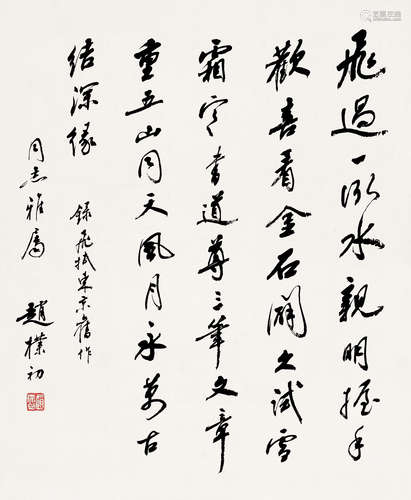 飛過一泓水親朋握手
歡喜看金石久試雪
霜寒書道尊三筆文章
重五山同天風月永萬古
結深緣
錄飛抵東京舊作
同志雅屬
趙樸初